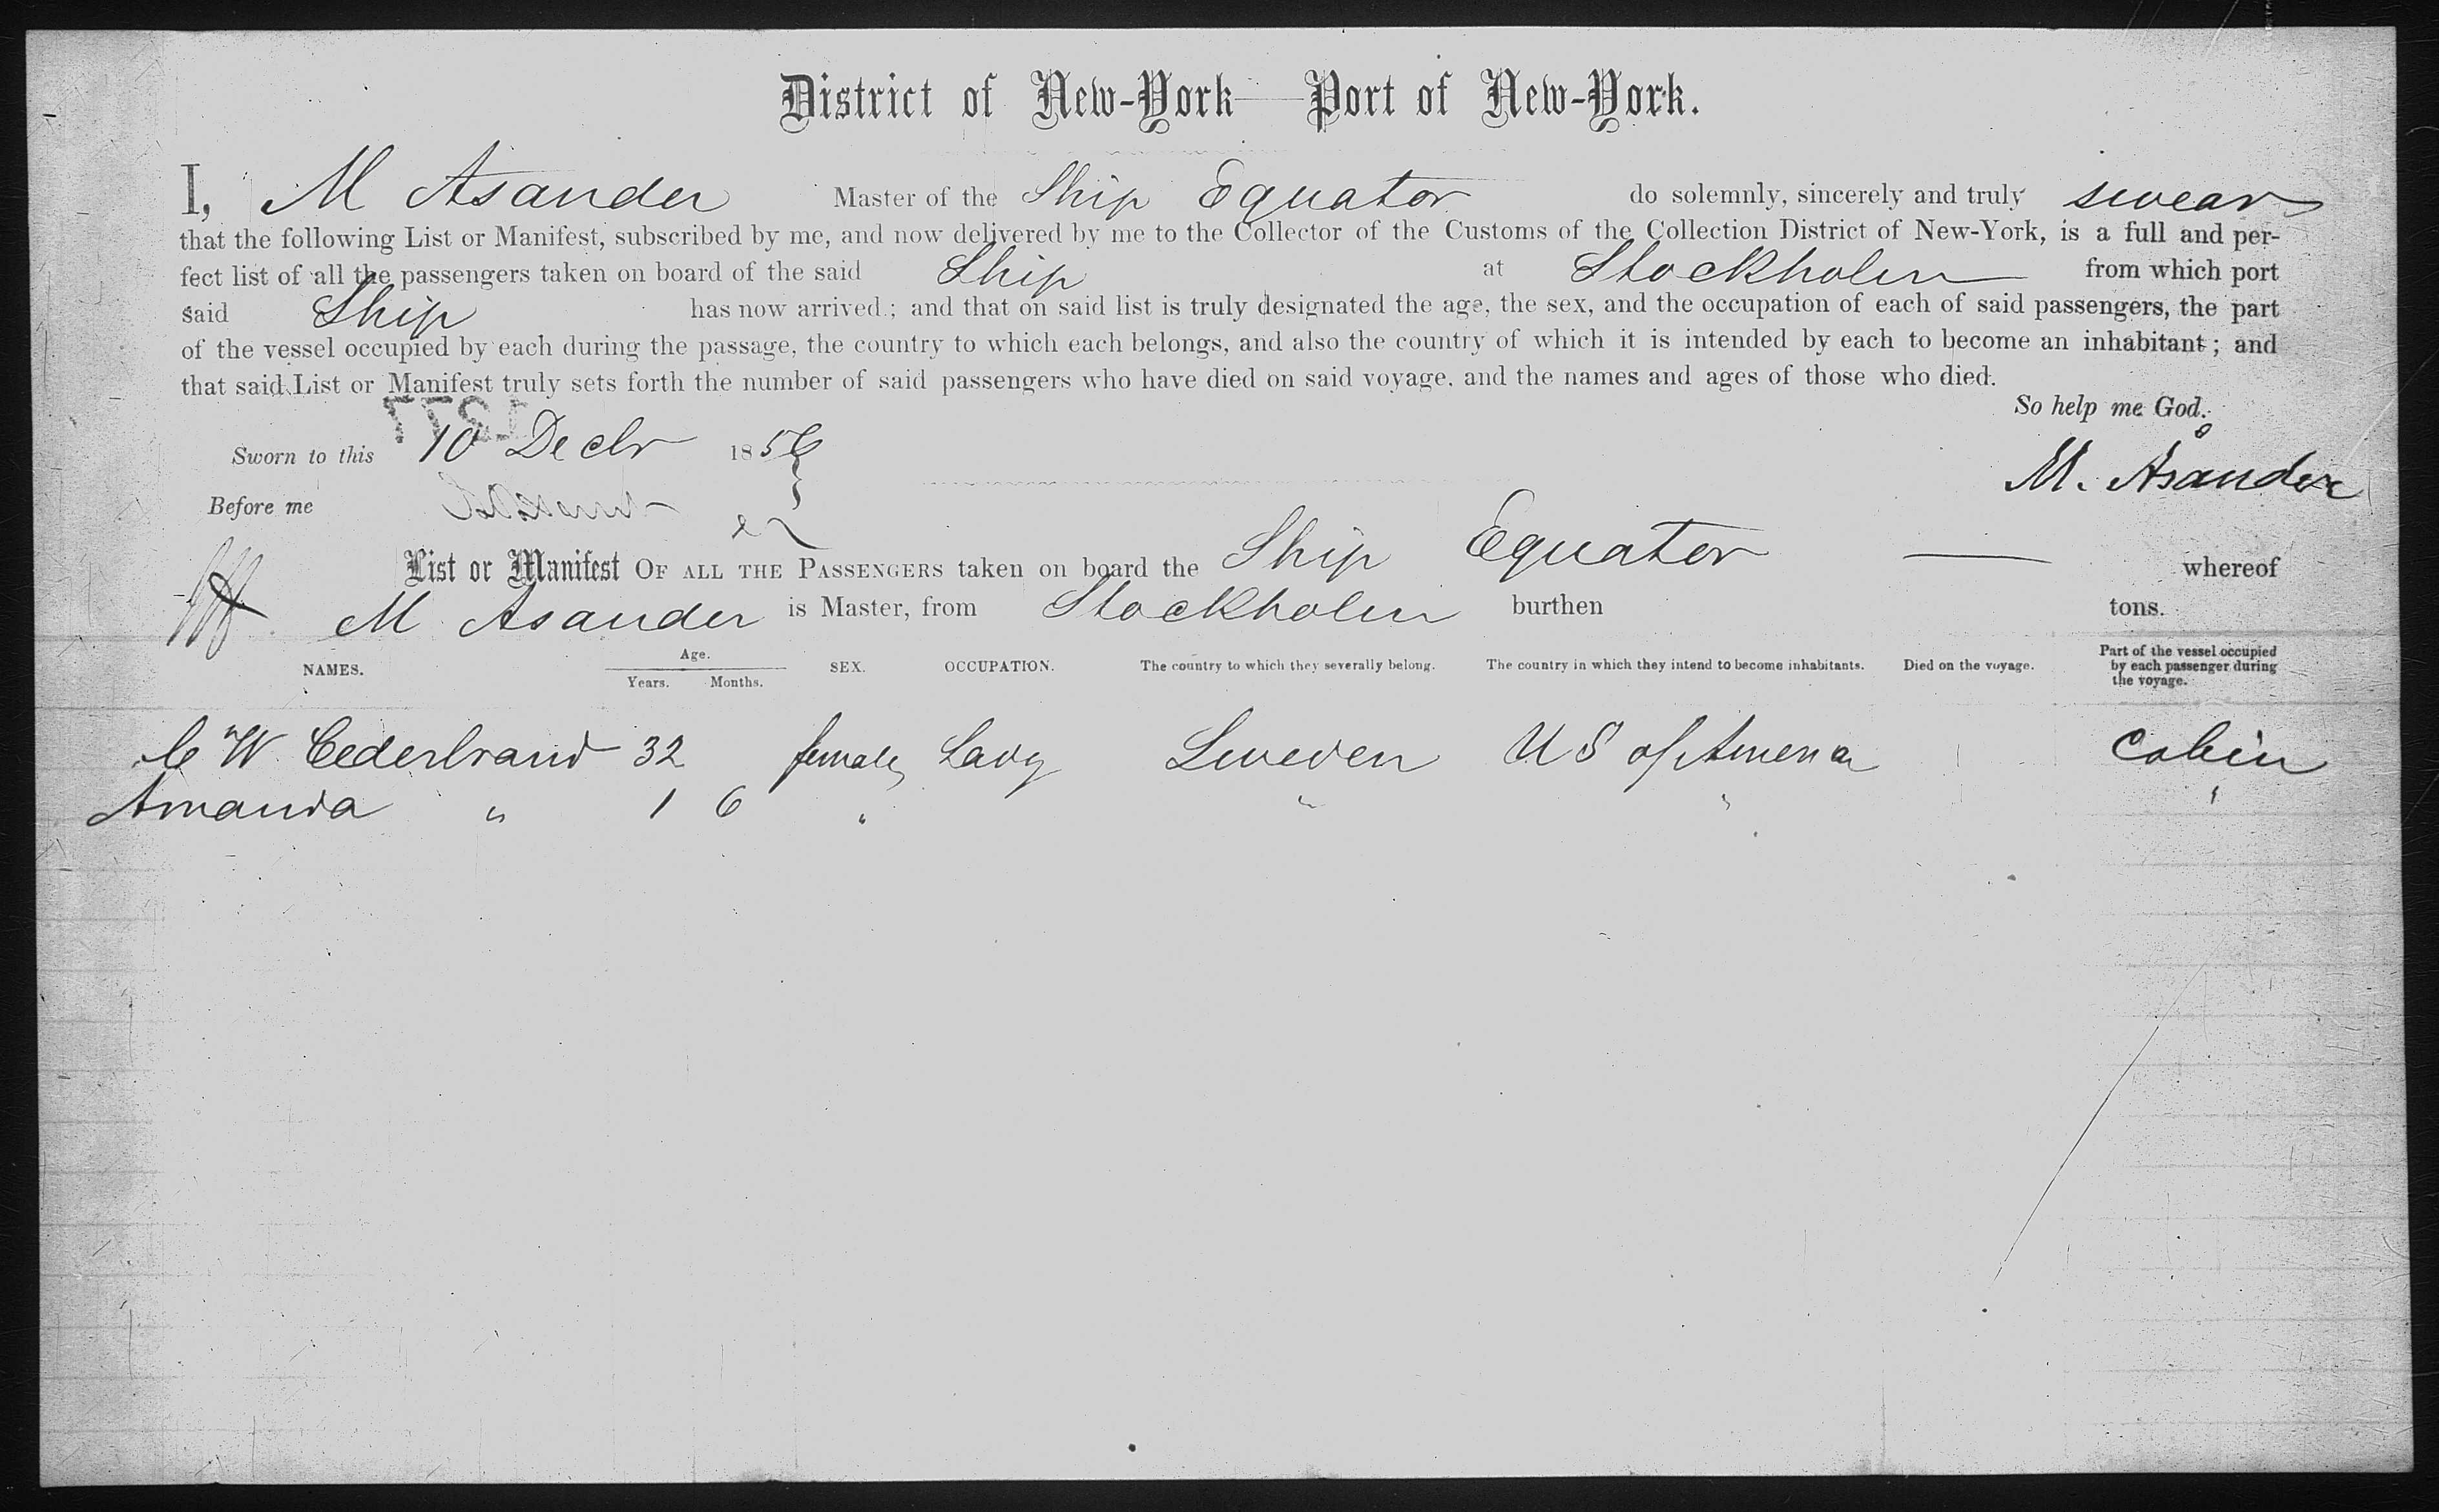 District of New-York—Port of New-York.
I, M Asander Master of the Ship Equator do solemnly, sincerely and truly swear
that the following List or Manifest, subscribed by me, and now delivered by me to the Collector of the Customs of the Collection District of New-York, is a full and per-
fect list of all the passengers taken on board of the said Ship at Stockholm from which port
said Ship has now arrived; and that on said list is truly designated the age, the sex, and the occupation of each of said passengers, the part
of the vessel occupied by each during the passage, the country to which each belongs, and also the country of which it is intended by each to become an inhabitant; and
that said List or Manifest truly sets forth the number of said passengers who have died on said voyage, and the names and ages of those who died.
So help me God.
Sworn to this 10 Decbr 1856
M. Åsander
Before me
List or Manifest OF ALL THE PASSENGERS taken on board the Ship Equator — whereof
M Asander is Master, from Stockholm burthen tons.
NAMES. Age. Years. Months. SEX. OCCUPATION. The country to which they severally belong. The country in which they intend to become inhabitants. Died on the voyage. Part of the vessel occupied by each passenger during the voyage.
C W Cederbrand 32 female Lady Sweden U S of America Cabin
Amanda " 1 6 " " " "